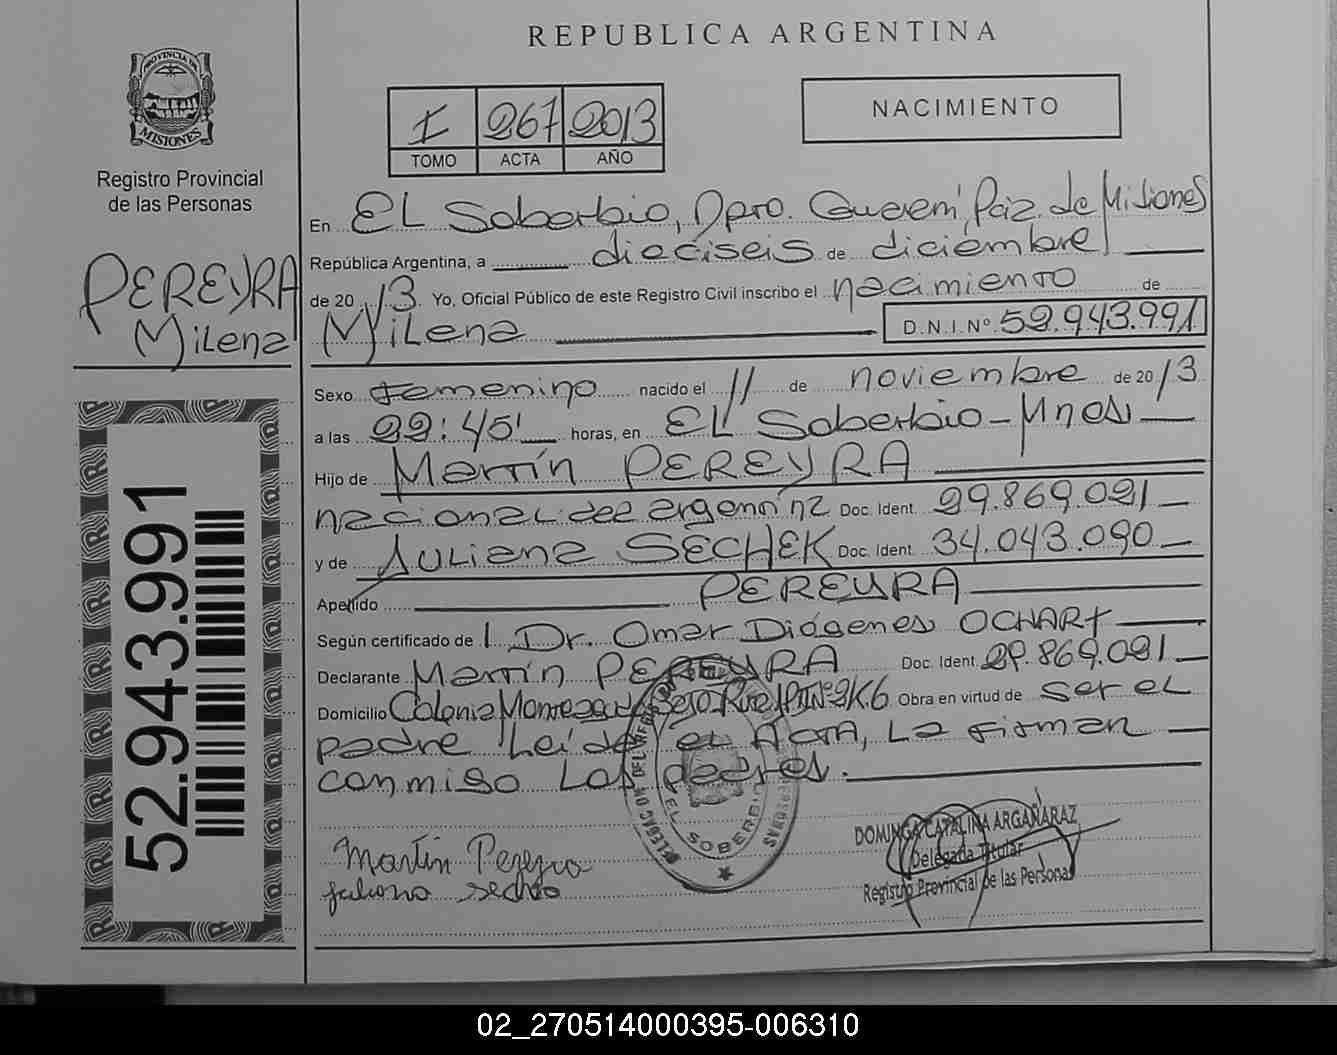 REPUBLICA ARGENTINA
PROVINCIA DE MISIONES
Registro Provincial
de las Personas
PEREYRA
Milena
52.943.991
I 267 2013
TOMO ACTA AÑO
NACIMIENTO
En EL Soberbio, Dpto. Guaraní Pcia. de Misiones
República Argentina, a dieciseis de diciembre
de 2013 Yo, Oficial Público de este Registro Civil inscribo el nacimiento de
Milena D.N.I. Nº 52.943.991
Sexo Femenino nacido el 11 de noviembre de 2013
a las 22:45' horas, en EL Soberbio - Mnes
Hijo de Martín PEREYRA
nacionalidad argentina Doc. Ident. 29.869.021
y de Juliana SECHEK Doc. Ident. 34.043.090
Apellido PEREYRA
Según certificado de Dr. Omar Diógenes OCHART
Declarante Martín PEREYRA Doc. Ident. 29.869.021
Domicilio Colonia K6 Obra en virtud de ser el
padre Leída el ACTA, La firman
conmigo Los padres.
DELEGACION DEL
EL SOBERBIO
Martin Pereyra
Juliana
DOMINGA CATALINA ARGAÑARAZ
Delegada Titular
Registro Provincial de las Personas
02_270514000395-006310